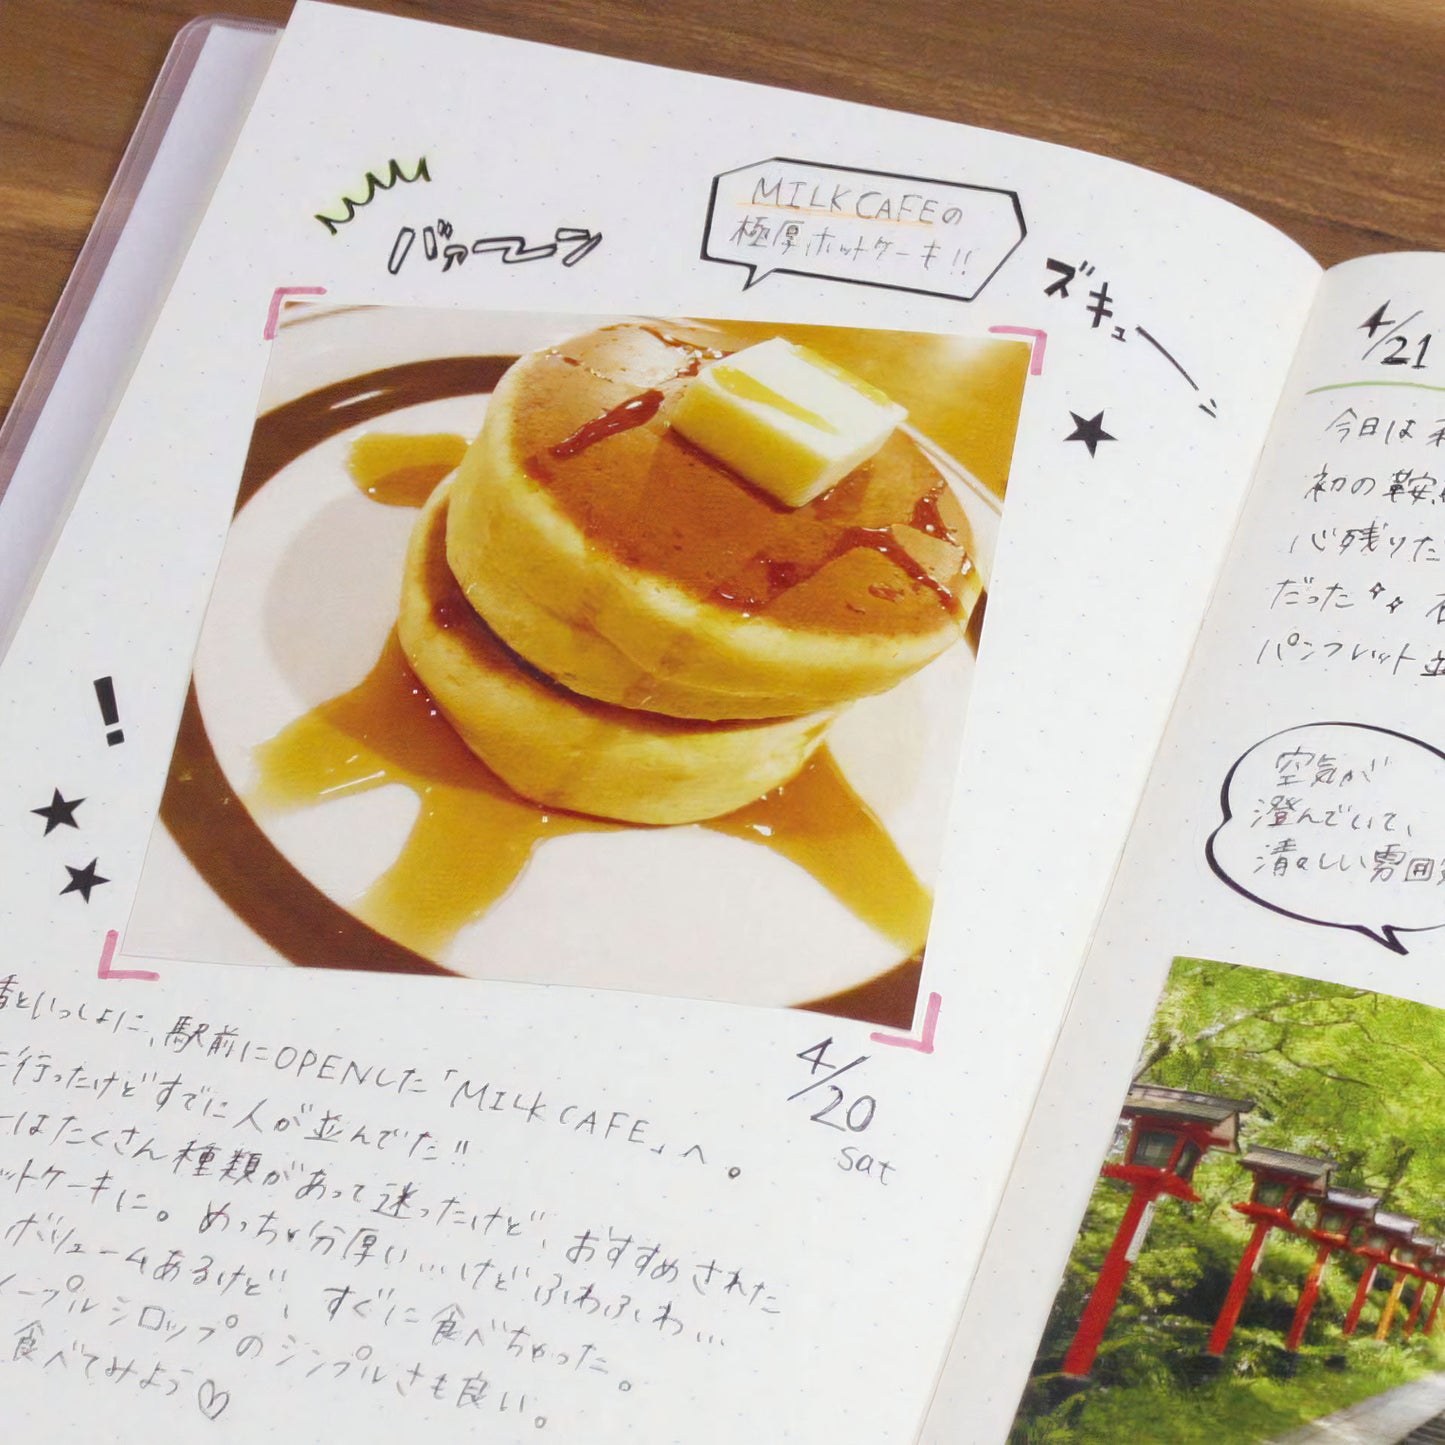 バァーン
MILK CAFEの
極厚ホットケーキ!!
ズキューン
!
といっしょに、駅前にOPENした「MILK CAFE」へ。
行ったけどすでに人が並んでた!!
はたくさん種類があって迷ったけど、おすすめされた
ットケーキに。めっちゃ分厚い…けどふわふわ…
ボリュームあるけど、すぐに食べちゃった。
ープルシロップのシンプルさも良い。
食べてみよう♡
4/20
sat
4/21
今日は
初の鞍
心残りた
だった
パンフレット
空気が
澄んでいて、
清々しい雰囲